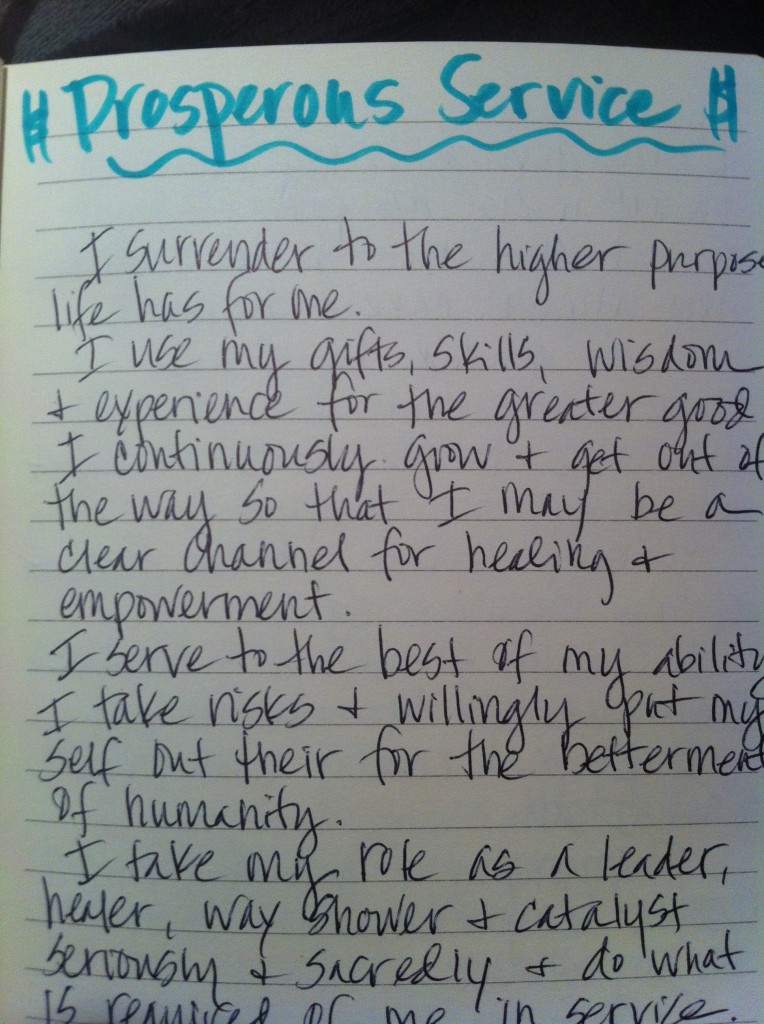 $ Prosperous Service $
I surrender to the higher purpose
life has for me.
I use my gifts, skills, wisdom
+ experience for the greater good
I continuously grow + get out of
the way so that I may be a
clear channel for healing +
empowerment.
I serve to the best of my ability
I take risks + willingly put my
self out their for the betterment
of humanity.
I take my role as a leader,
healer, way shower + catalyst
seriously + sacredly + do what
is required of me in service.